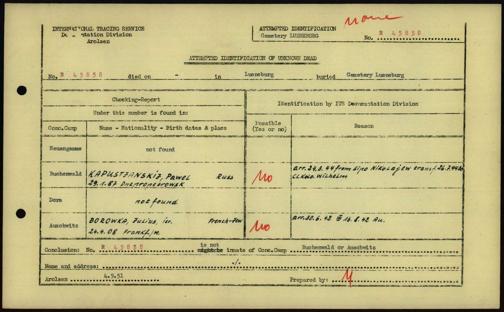 none
INTERNATIONAL TRACING SERVICE
Documentation Division
Arolsen
ATTEMPTED IDENTIFICATION
Cemetery LUNEBERG
No. R 45838
ATTEMPTED IDENTIFICATION OF UNKNOWN DEAD
No. R 45838 died on - in Luneburg buried Cemetery Luneburg
Checking-Report
Under this number is found in:
Identification by ITS Documentation Division
Conc.Camp
Name - Nationality - Birth dates & place
Possible
(Yes or no)
Reason
Neuengamme not found
Buchenwald KAPUSTJANSKIJ, Pawel Russ
29.1.87 Dnepropetrowsk
No
arr. 24.6.44 from Sipo Nikolajew transf. 26.7.44 to
C.C.Kdo. Wilhelm
Dora not found
Auschwitz BOROWKA, Julius, Isr. French-Jew
24.4.08 Frankf./M.
No
arr. 30.6.42 @ 14.8.42 Au.
Conclusion: No. R 45838 is not inmate of Conc.Camp Buchenwald or Auschwitz
Name and address: ./.
Arolsen 4.9.51
Prepared by: